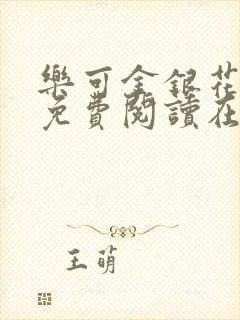 樂可金銀花
免費閱讀在
王萌